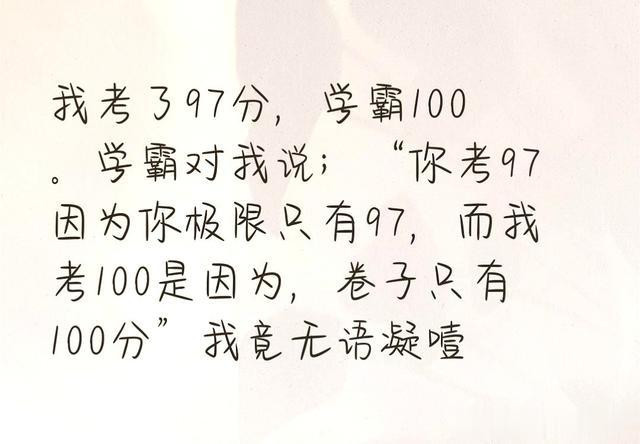 我考了97分，学霸100
。学霸对我说；“你考97
因为你极限只有97，而我
考100是因为，卷子只有
100分”我竟无语凝噎